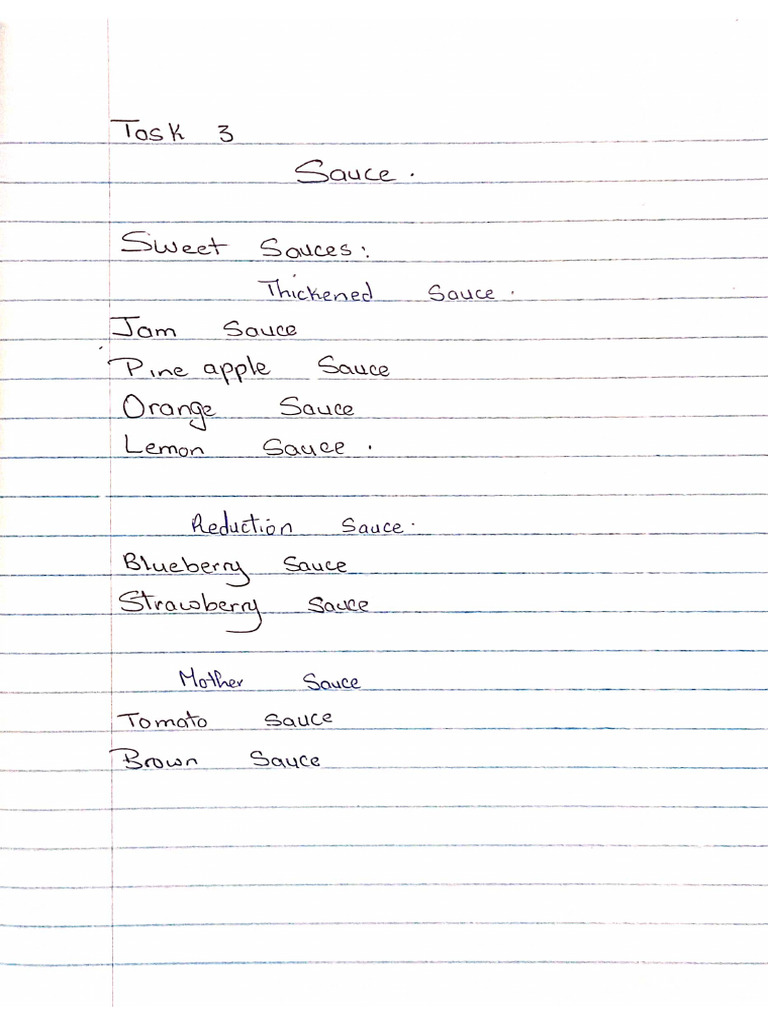 Task 3
Sauce.
Sweet Sauces:
Thickened Sauce.
Jam Sauce
Pine apple Sauce
Orange Sauce
Lemon Sauce.
Reduction Sauce.
Blueberry Sauce
Strawberry Sauce
Mother Sauce
Tomato Sauce
Brown Sauce